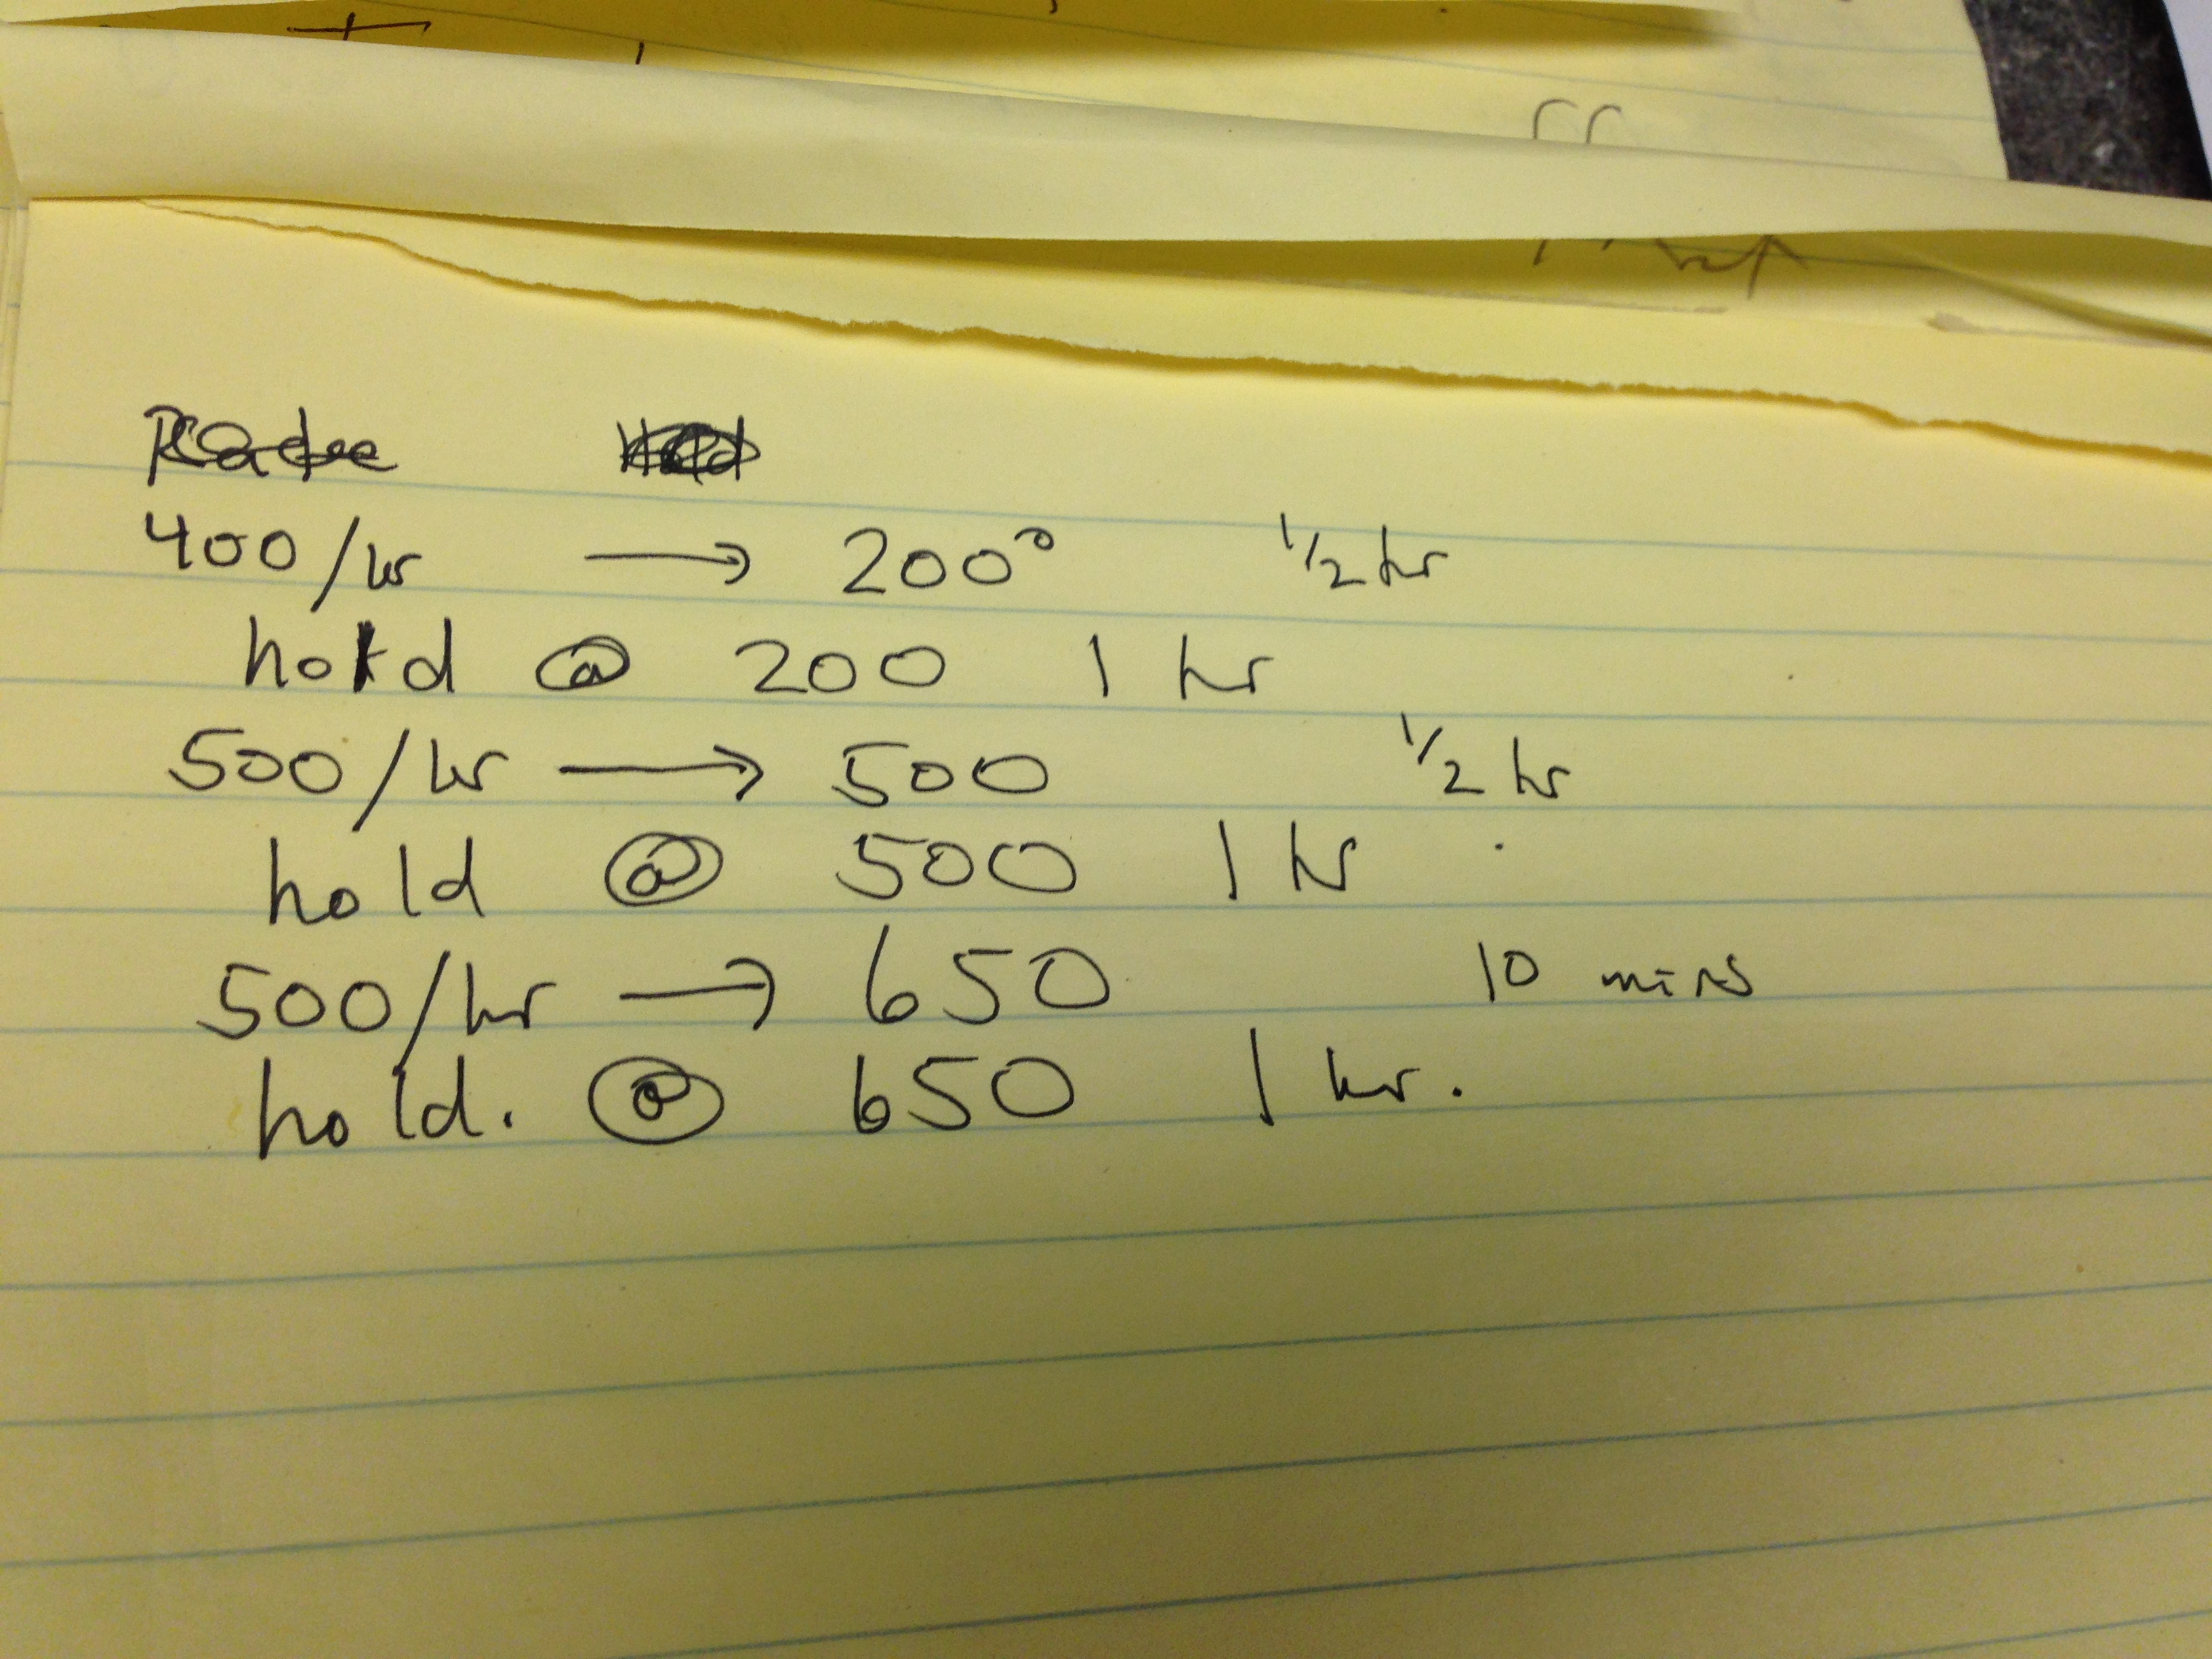 400/hr → 200° 1/2 hr
hold @ 200 1 hr
500/hr → 500 1/2 hr
hold @ 500 1 hr
500/hr → 650 10 mins
hold. @ 650 1 hr.